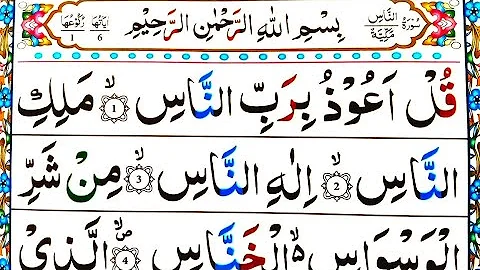 سُوْرَةُ النَّاسِ مَكِّيَّةٌ بِسْمِ اللهِ الرَّحْمٰنِ الرَّحِيْمِ اٰيَاتُهَا 6 رُكُوْعُهَا 1
قُلْ اَعُوْذُ بِرَبِّ النَّاسِ ۙ 1 مَلِكِ
النَّاسِ ۙ 2 اِلٰهِ النَّاسِ ۙ 3 مِنْ شَرِّ
الْوَسْوَاسِ ۵ۙ الْخَنَّاسِ ۪ۙ 4 الَّذِيْ